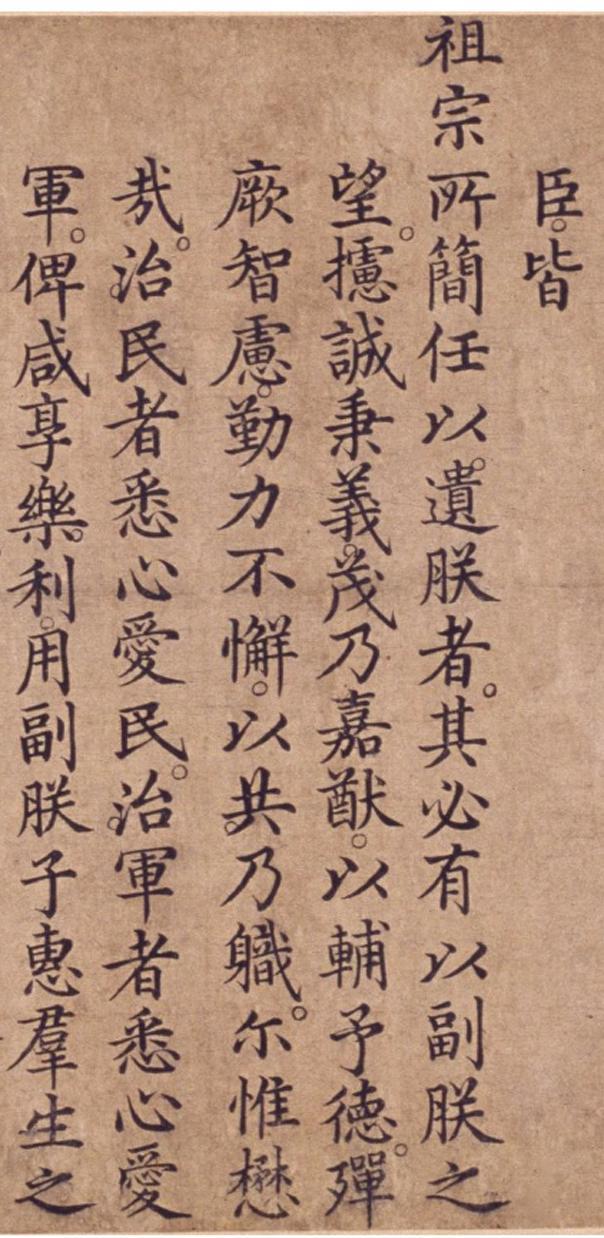 臣。皆
祖宗所簡任以。遺朕者。其必有以副朕之
望。攄誠秉義。茂乃嘉猷。以輔予德。殫
厥智慮。勤力不懈。以共乃軄。尓惟懋
㦲。治民者悉心愛民。治軍者悉心愛
軍。俾咸享樂。利。用副朕子惠羣生之